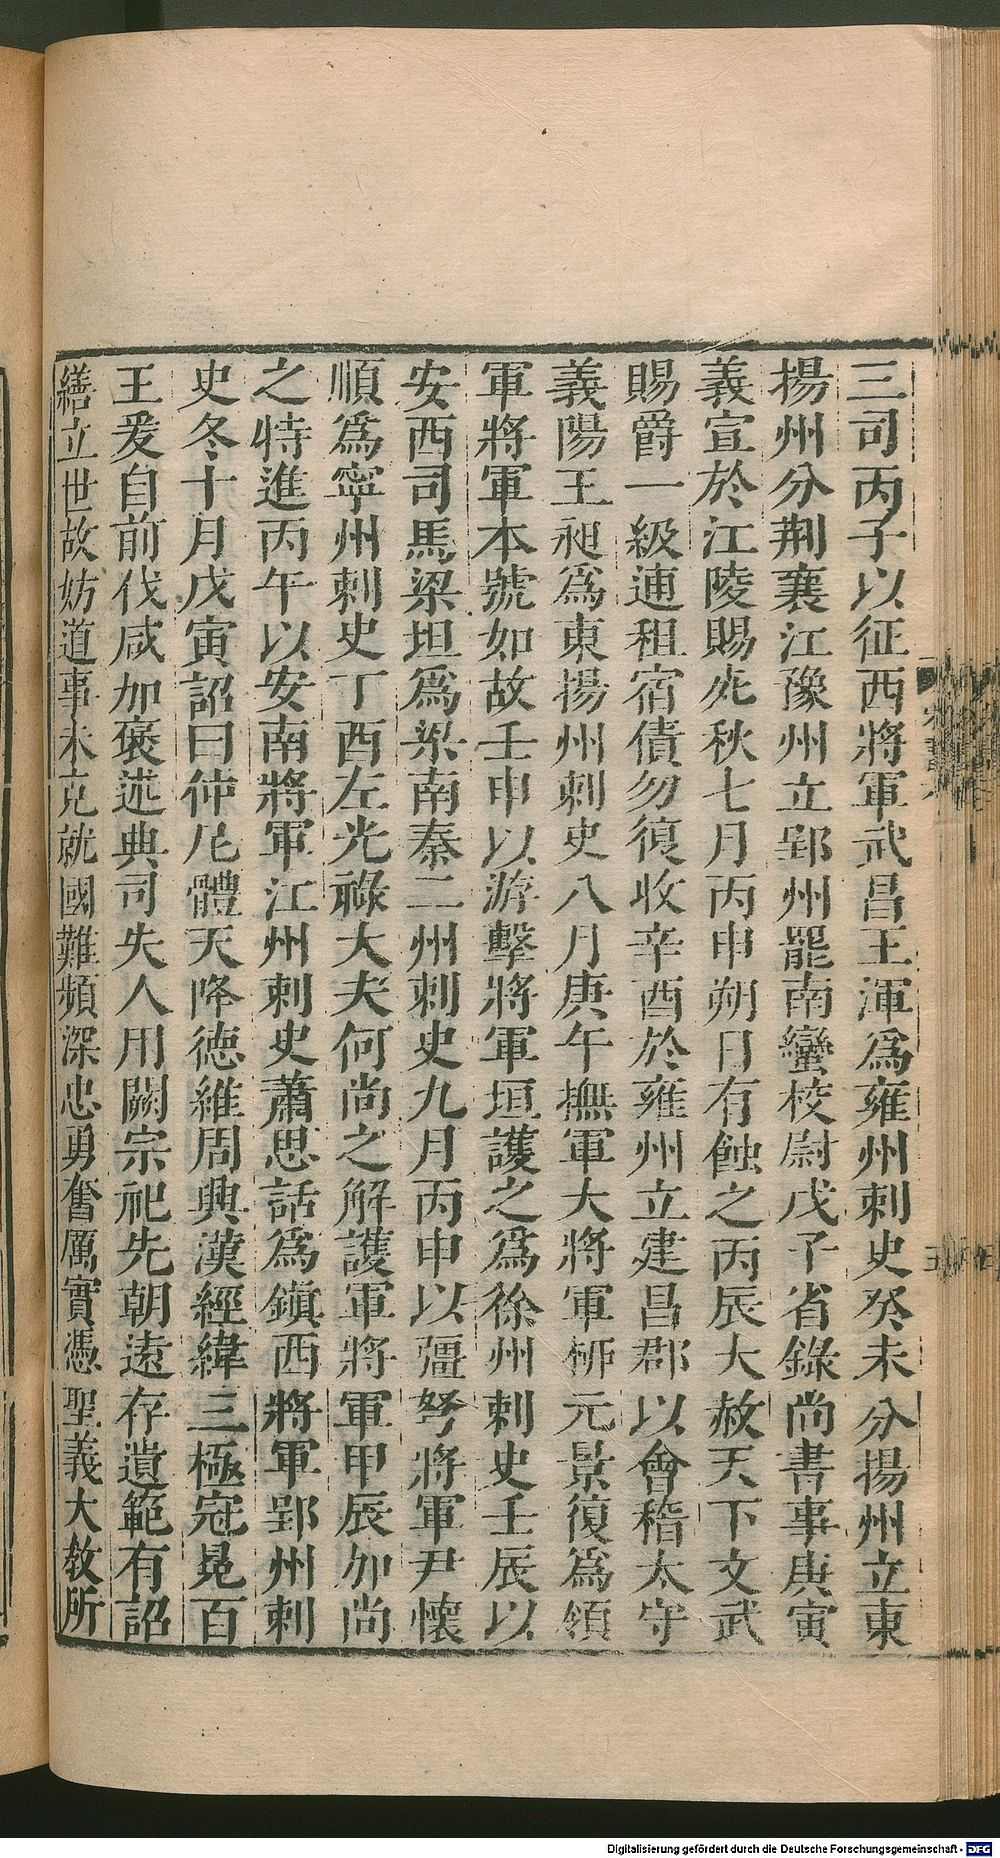 三司丙子以征西將軍武昌王渾爲雍州刺史癸未分揚州立東
揚州分荆襄江豫州立郢州罷南蠻校尉戊子省錄尚書事庚寅
義宣於江陵賜死秋七月丙申朔日有蝕之丙辰大赦天下文武
賜爵一級逋租宿債勿復收辛酉於雍州立建昌郡以會稽太守
義陽王昶爲東揚州刺史八月庚午撫軍大將軍栁元景復爲領
軍將軍本號如故壬申以游擊將軍垣護之爲徐州刺史壬辰以
安西司馬梁坦爲梁南秦二州刺史九月丙申以彊弩將軍尹懷
順爲寧州刺史丁酉左光祿大夫何尚之解護軍將軍甲辰加尚
之特進丙午以安南將軍江州刺史蕭思話爲鎭西將軍郢州刺
史冬十月戊寅詔曰仲尼體天降德維周興漢經緯三極冠冕百
王爰自前代咸加褒述典司失人用闕宗祀先朝遠存遺範有詔
繕立世故妨道事未克就國難頻深忠勇奮厲實憑聖義大教所
Digitalisierung gefördert durch die Deutsche Forschungsgemeinschaft - DFG